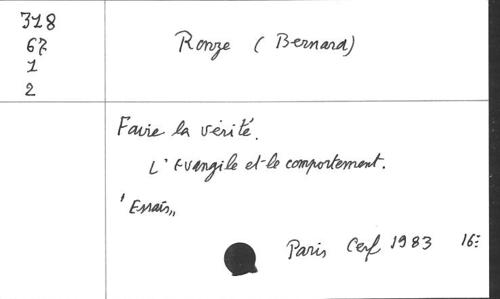 318
67
1
2
Ronze (Bernard)
Faire la vérité.
L'Evangile et le comportement.
"Essais"
Paris Cerf 1983 16: